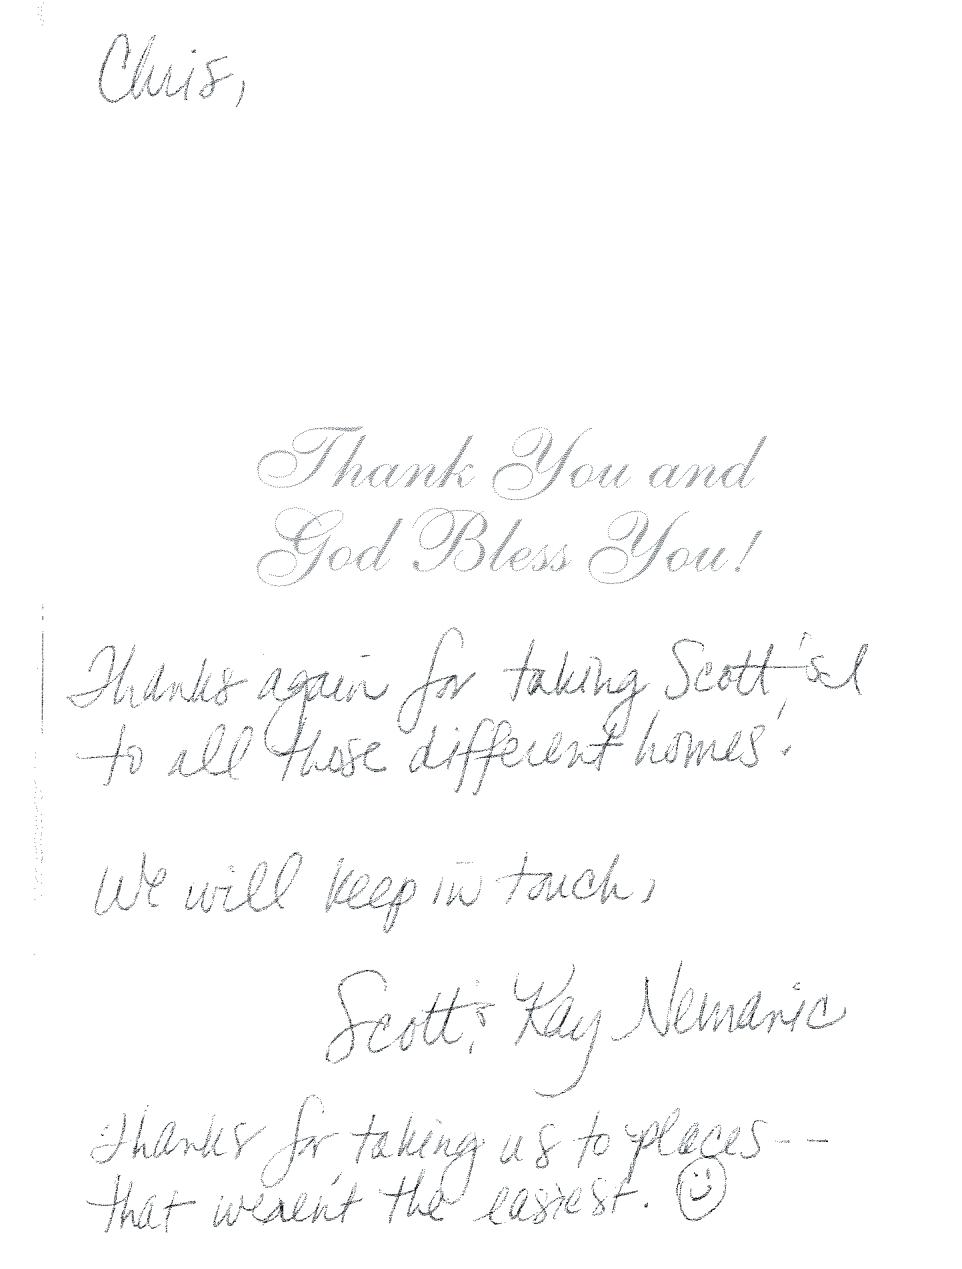 Chris,
Thank You and
God Bless You!
Thanks again for taking Scott & I
to all those different homes!
We will keep in touch,
Scott & Kay Nemanic
Thanks for taking us to places--
that weren't the easiest. ☺